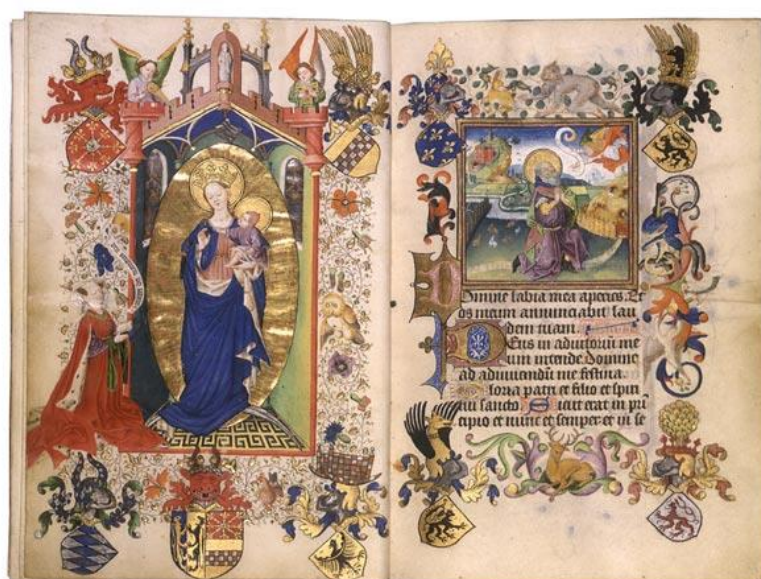 Domine labia mea aperies. Et
os meum annunciabit lau
dem tuam.
Deus in adiutoriū me
um intende Domine
ad adiuvandū me festina.
Gloria patri et filio et spiri
tui sancto. Sicut erat in prī
cipio et nunc et semper et in se